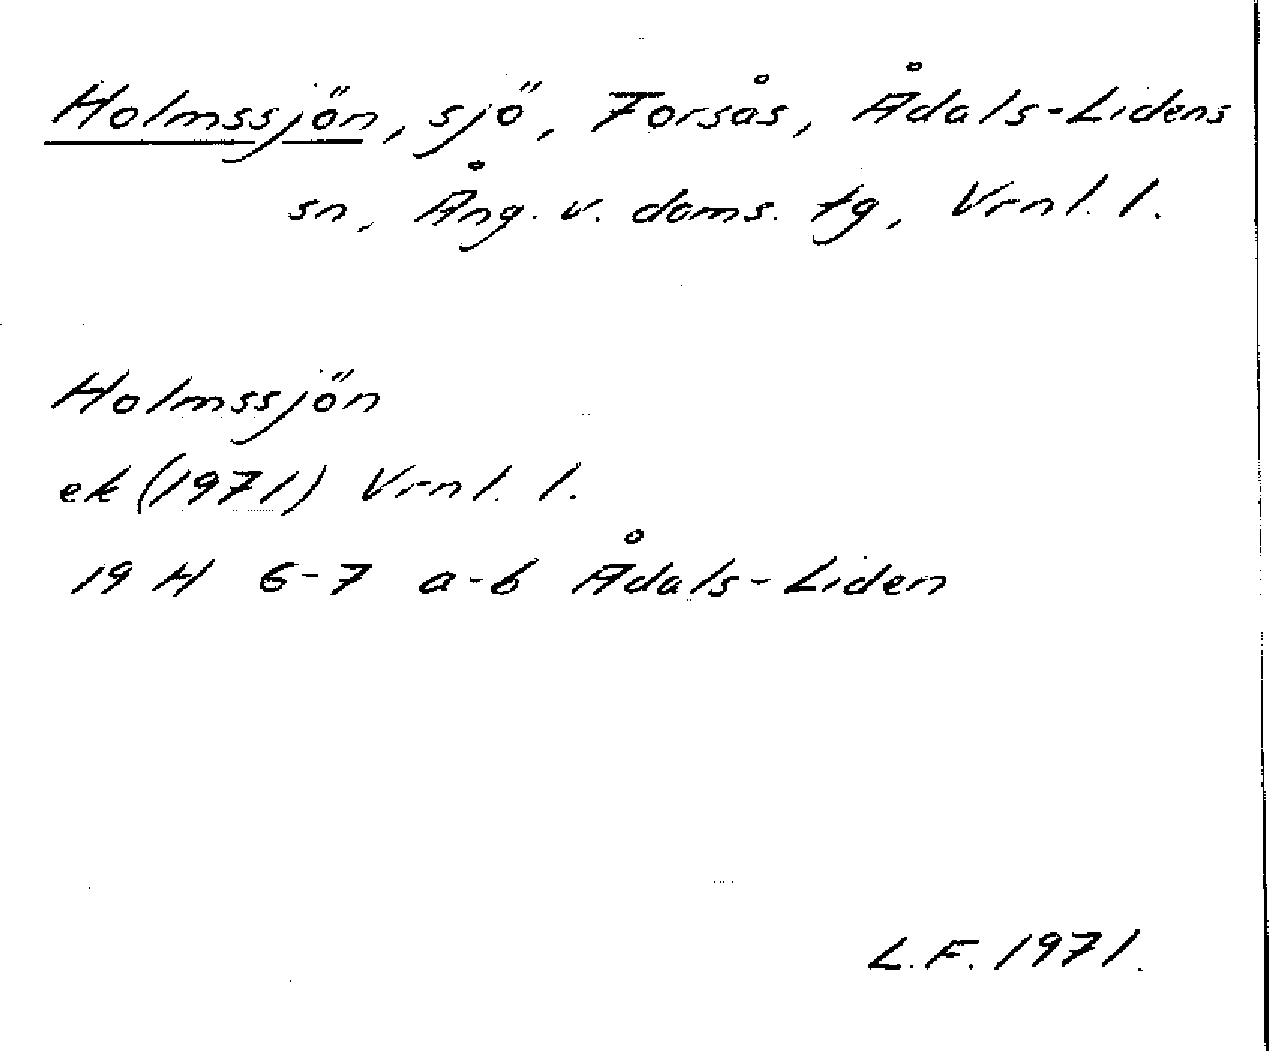 Holmssjön, sjö, Forsås, Ådals-Lidens
sn, Ång. v. doms. tg, Vrnl. l.
Holmssjön
ek (1971) Vrnl. l.
19 H 6-7 a-b Ådals-Liden
L.F. 1971.